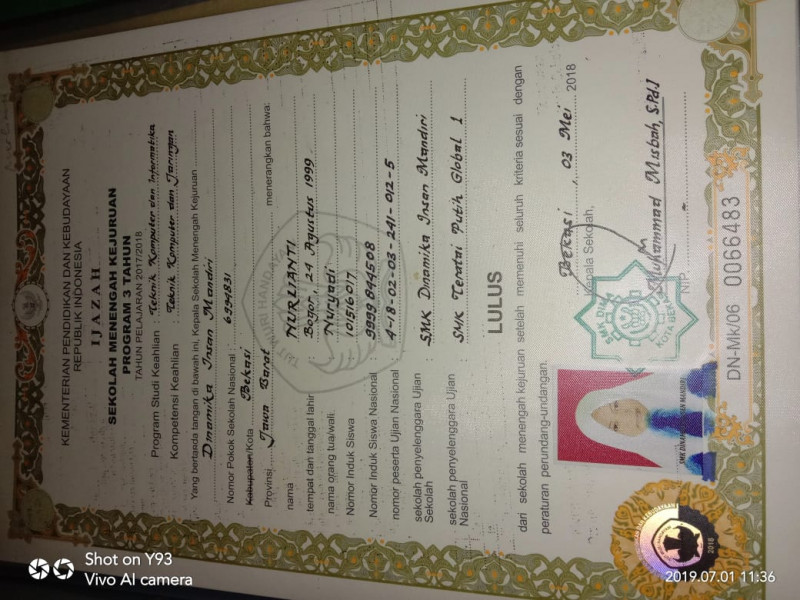 KEMENTERIAN PENDIDIKAN DAN KEBUDAYAAN
REPUBLIK INDONESIA
IJAZAH
SEKOLAH MENENGAH KEJURUAN
PROGRAM 3 TAHUN
TAHUN PELAJARAN 2017/2018
Program Studi Keahlian : Teknik Komputer dan Informatika
Kompetensi Keahlian : Teknik Komputer dan Jaringan
Yang bertanda tangan di bawah ini, Kepala Sekolah Menengah Kejuruan
Dinamika Insan Mandiri
Nomor Pokok Sekolah Nasional : 6994831
Kabupaten/Kota Bekasi
Provinsi Jawa Barat menerangkan bahwa:
nama NURLIANTI
tempat dan tanggal lahir Bogor, 24 Agustus 1999
nama orang tua/wali Nuryadi
Nomor Induk Siswa 101516017
Nomor Induk Siswa Nasional 9999844508
nomor peserta Ujian Nasional 4-18-02-03-241-012-5
sekolah penyelenggara Ujian Sekolah : SMK Dinamika Insan Mandiri
sekolah penyelenggara Ujian Nasional : SMK Teratai Putih Global 1
LULUS
dari sekolah menengah kejuruan setelah memenuhi seluruh kriteria sesuai dengan
peraturan perundang-undangan.
Bekasi, 03 Mei 2018
Kepala Sekolah,
Muhammad Misbah, S.Pd.I
NIP. -
SMK DIN
KOTA BEKASI
TUT WURI HANDAYANI
DN-Mk/06 0066483
2018
Shot on Y93
Vivo AI camera
2019.07.01 11:36